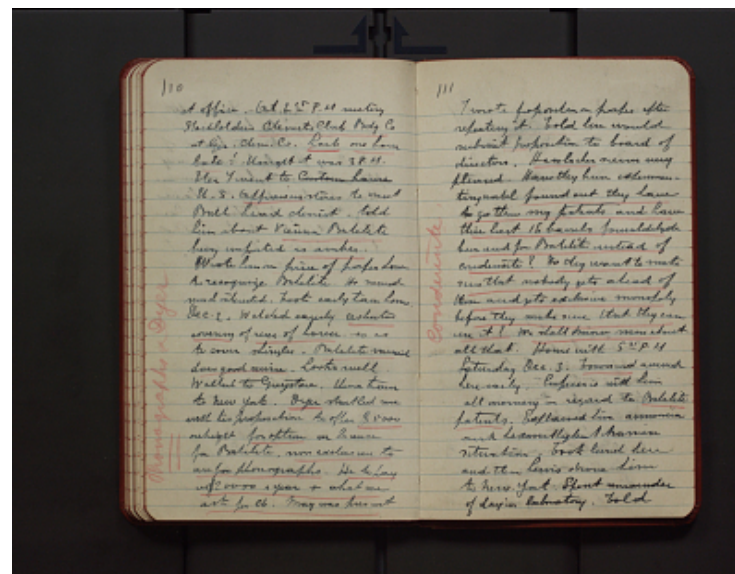 110
at office. At 2 P.M. meeting
Stockholders Chemists Club Bldg Co
at Am. Chem. Co. Lost one hour
late! thought it was 3 P.M.
Then I went to Custom House
U.S. Appraisers stores to meet
Bull head chemist. told
him about Vienna Bakelite
being imported as amber.
Wrote him on piece of paper how
to recognize Bakelite. He seemed
much interested. Took early train home
Dec. 2. Watched asbestos
covering of roof of house so as
to cover shingles. Bakelite varnish
does good service. Looks well
Walked to Greystone. Then train
to New York. Dyer startled me
with his proposition to offer $5000
outright for option on license
for Bakelite, non exclusive to
use for phonographs. He to pay
$20000 a year + what we
ask for it. May was present
Phonographs & Dyer
111
I wrote proposition on paper after
repeating it. Told him would
submit proposition to board of
directors. Hasslacher seems very
pleased. Have they him
found out they have
to go thru my patents and have
their last 15 barrels formaldehyde
been used for Bakelite instead of
condensite? Do they want to make
sure that nobody gets ahead of
them and gets exclusive monopoly
before they make sure that they can
use it? We shall know more about
all that. Home with 5 P.M
Saturday Dec. 3. Townsend
here early. Conference with him
all morning in regard to Bakelite
patents. Explained him ammonia
and hexamethylentetramin
situation. Took lunch here
and then drove him
to New York. Spent remainder
of day in laboratory. Told
Condensite